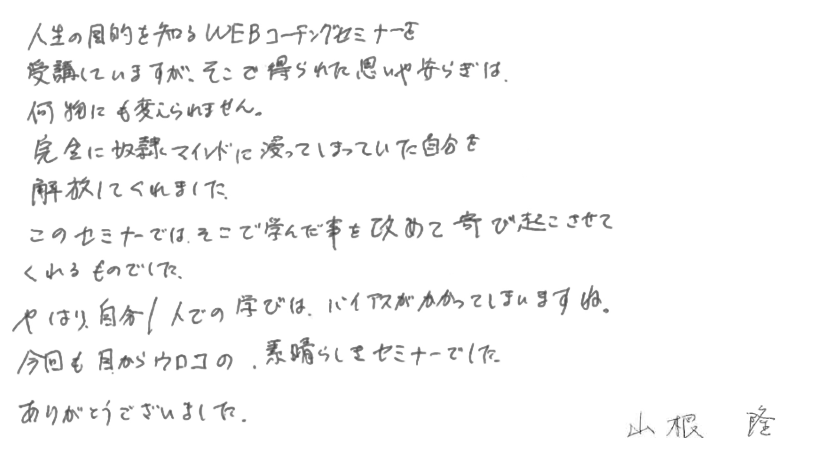 人生の目的を知るWEBコーチングセミナーを
受講していますが、そこで得られた思いや安らぎは、
何物にも変えられません。
完全に奴隷マインドに浸ってしまっていた自分を
解放してくれました。
このセミナーでは、そこで学んだ事を改めて寄び起こさせて
くれるものでした。
やはり、自分1人での学びは、バイアスがかかってしまいますね。
今回も目からウロコの、素晴らしきセミナーでした。
ありがとうございました。
山根 隆